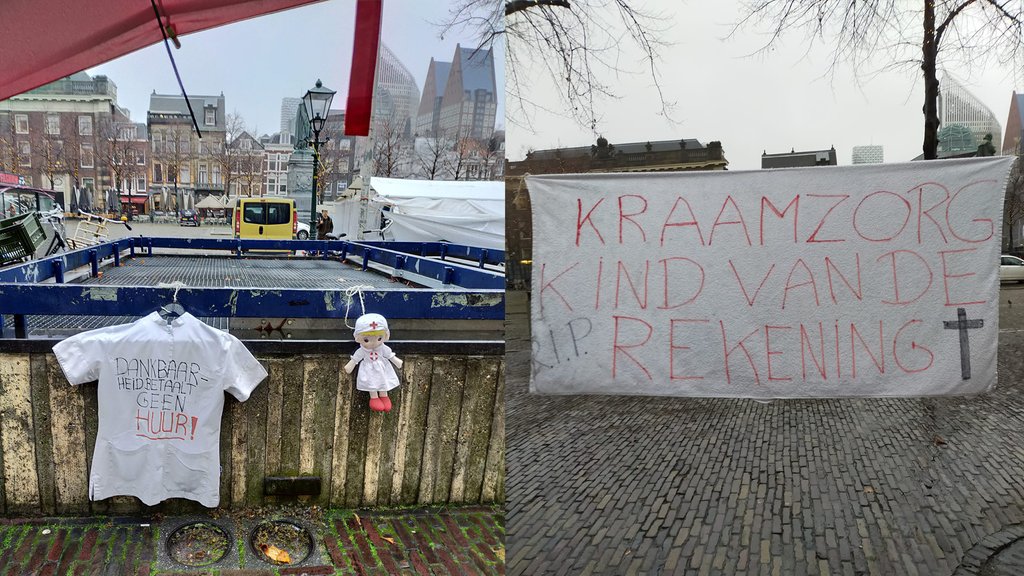 DANKBAAR-
HEID BETAALT
GEEN
HUUR!
KRAAMZORG
KIND VAN DE
R.I.P. REKENING